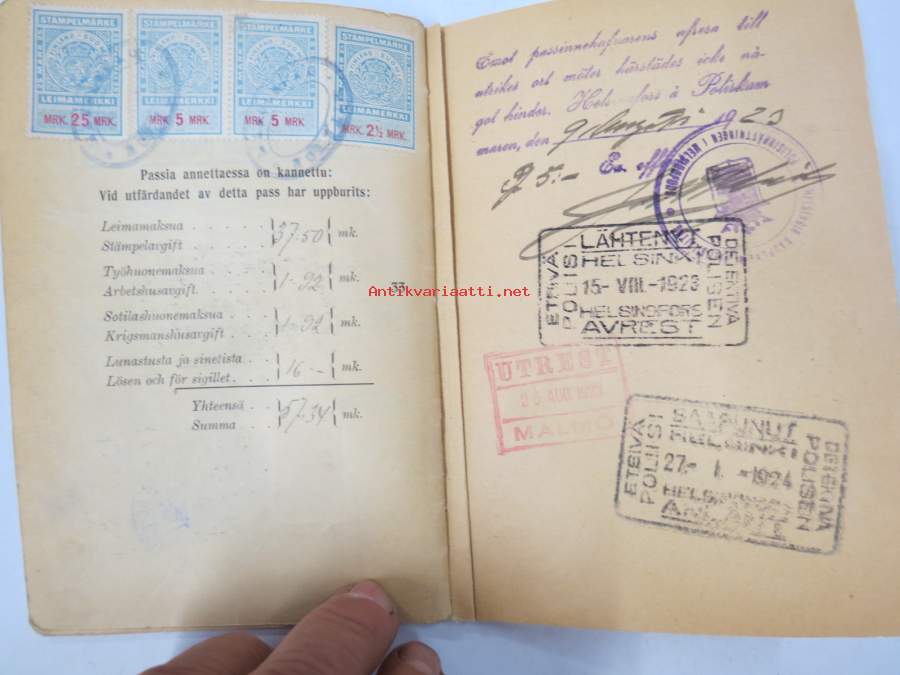 STAMPELMÄRKE
FINLAND · SUOMI
LEIMAMERKKI
MRK. 25 MRK.
STAMPELMÄRKE
FINLAND · SUOMI
LEIMAMERKKI
MRK 5 MRK.
STAMPELMÄRKE
FINLAND · SUOMI
LEIMAMERKKI
MRK 5 MRK.
STAMPELMÄRKE
FINLAND · SUOMI
LEIMAMERKKI
MRK. 2½ MRK.
Passia annettaessa on kannettu:
Vid utfärdandet av detta pass har uppburits:
Leimamaksua
Stämpelavgift . . . . . 37:50 mk.
Työhuonemaksua
Arbetshusavgift. . . . . 1-92 mk.
Sotilashuonemaksua
Krigsmanshusavgift . . . 1-92 mk.
Lunastusta ja sinetista
Lösen och för sigillet. . . . 16 – mk.
Yhteensä . .
Summa . . . 57.34 mk.
33
Antikvariaatti.net
Emot passinnehafvarens afresa till
utrikes ort möter härstädes icke nå-
got hinder. Helsingfors å Poliskam
maren, den 9 Augusti 1923
5:- Ex officio
LÄHTENYT
HELSINKI
15- VIII -1923
HELSINGFORS
AVREST
ETSIVÄ
POLIISI
DETEKTIVA
POLISEN
UTREST
AUG 1923
MALMÖ
SAAPUNUT
HELSINKI
27.- I. -1924
HELSINGFORS
ETSIVÄ
POLIISI
DETEKTIVA
POLISEN